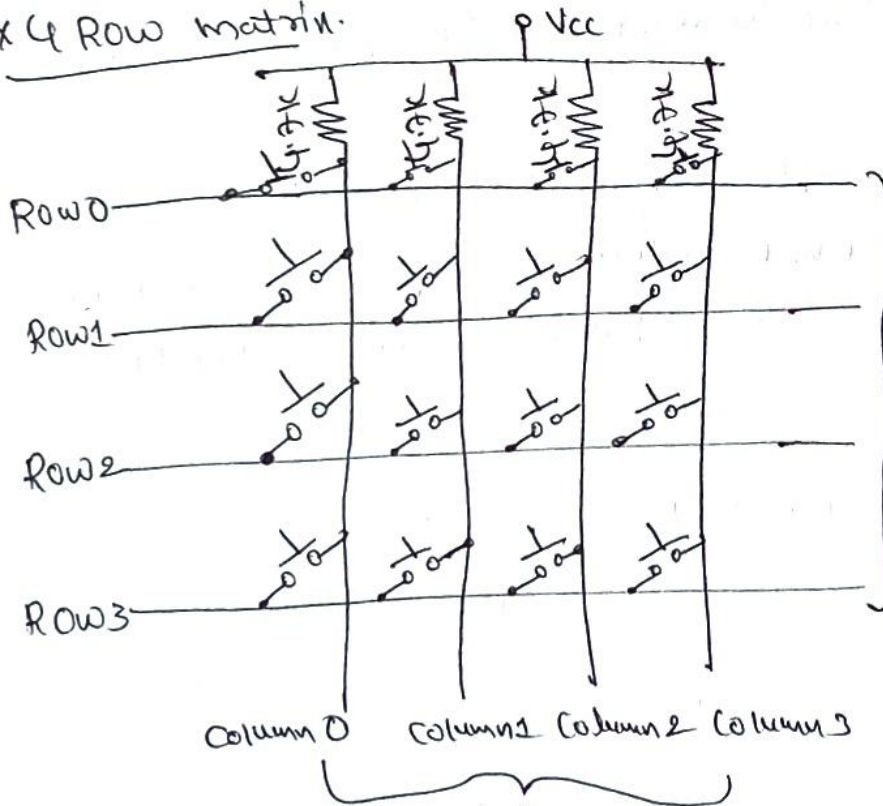 x 4 Row matrix.
Vcc
4.7k 4.7k 4.7k 4.7k
Row0
Row1
Row2
Row3
Column 0 Column1 Column2 Column3